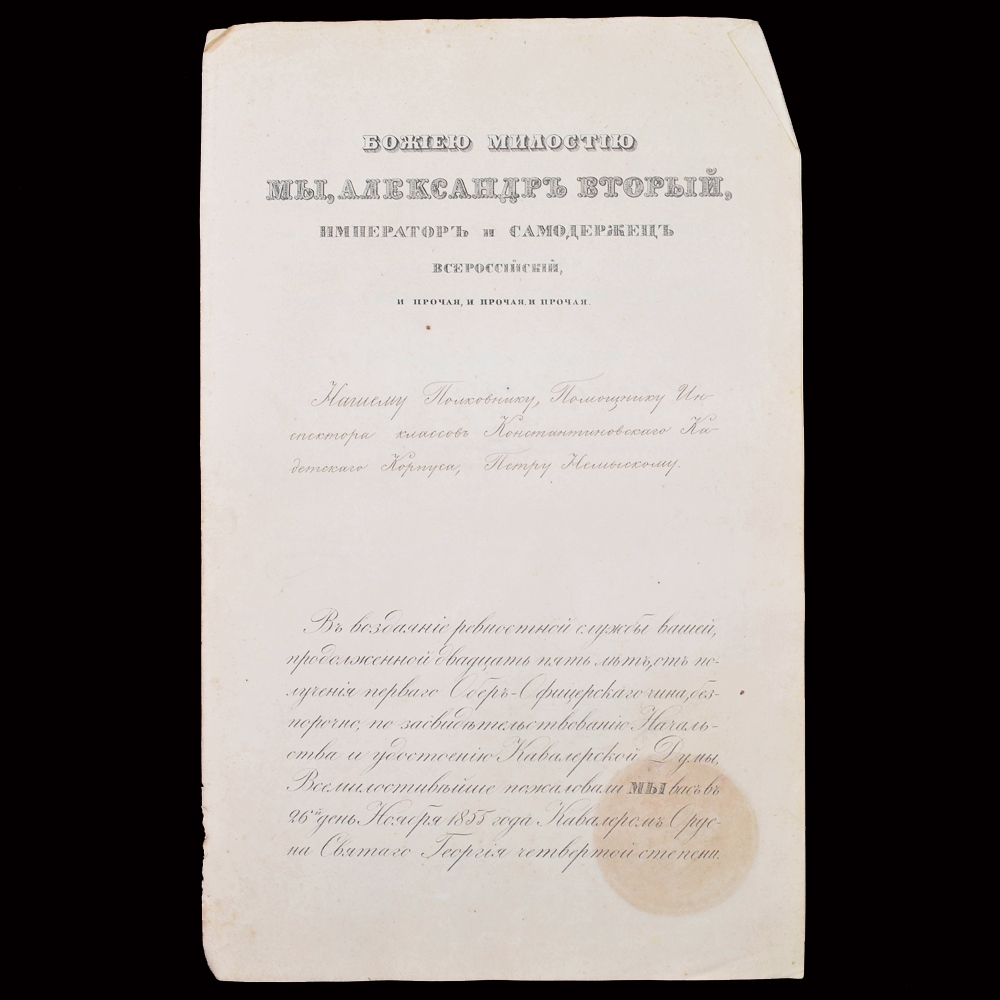 БОЖІЕЮ МИЛОСТІЮ
МЫ, АЛЕКСАНДРЪ ВТОРЫЙ,
ИМПЕРАТОРЪ и САМОДЕРЖЕЦЪ
ВСЕРОССІЙСКІЙ,
И ПРОЧАЯ, И ПРОЧАЯ, И ПРОЧАЯ.
Нашему Полковнику, Помощнику Ин-
спектора классовъ Константиновскаго Ка-
детскаго Корпуса, Петру
Въ воздаяніе ревностной службы вашей,
продолженной двадцать пять лѣтъ, отъ по-
лученія перваго Оберъ-Офицерскаго чина, без-
порочно, по засвидѣтельствованію Началь-
ства и удостоенію Кавалерской Думы,
Всемилостивѣйше пожаловали МЫ васъ въ
26й день Ноября 1855 года Кавалеромъ Орде-
на Святаго Георгія четвертой степени.